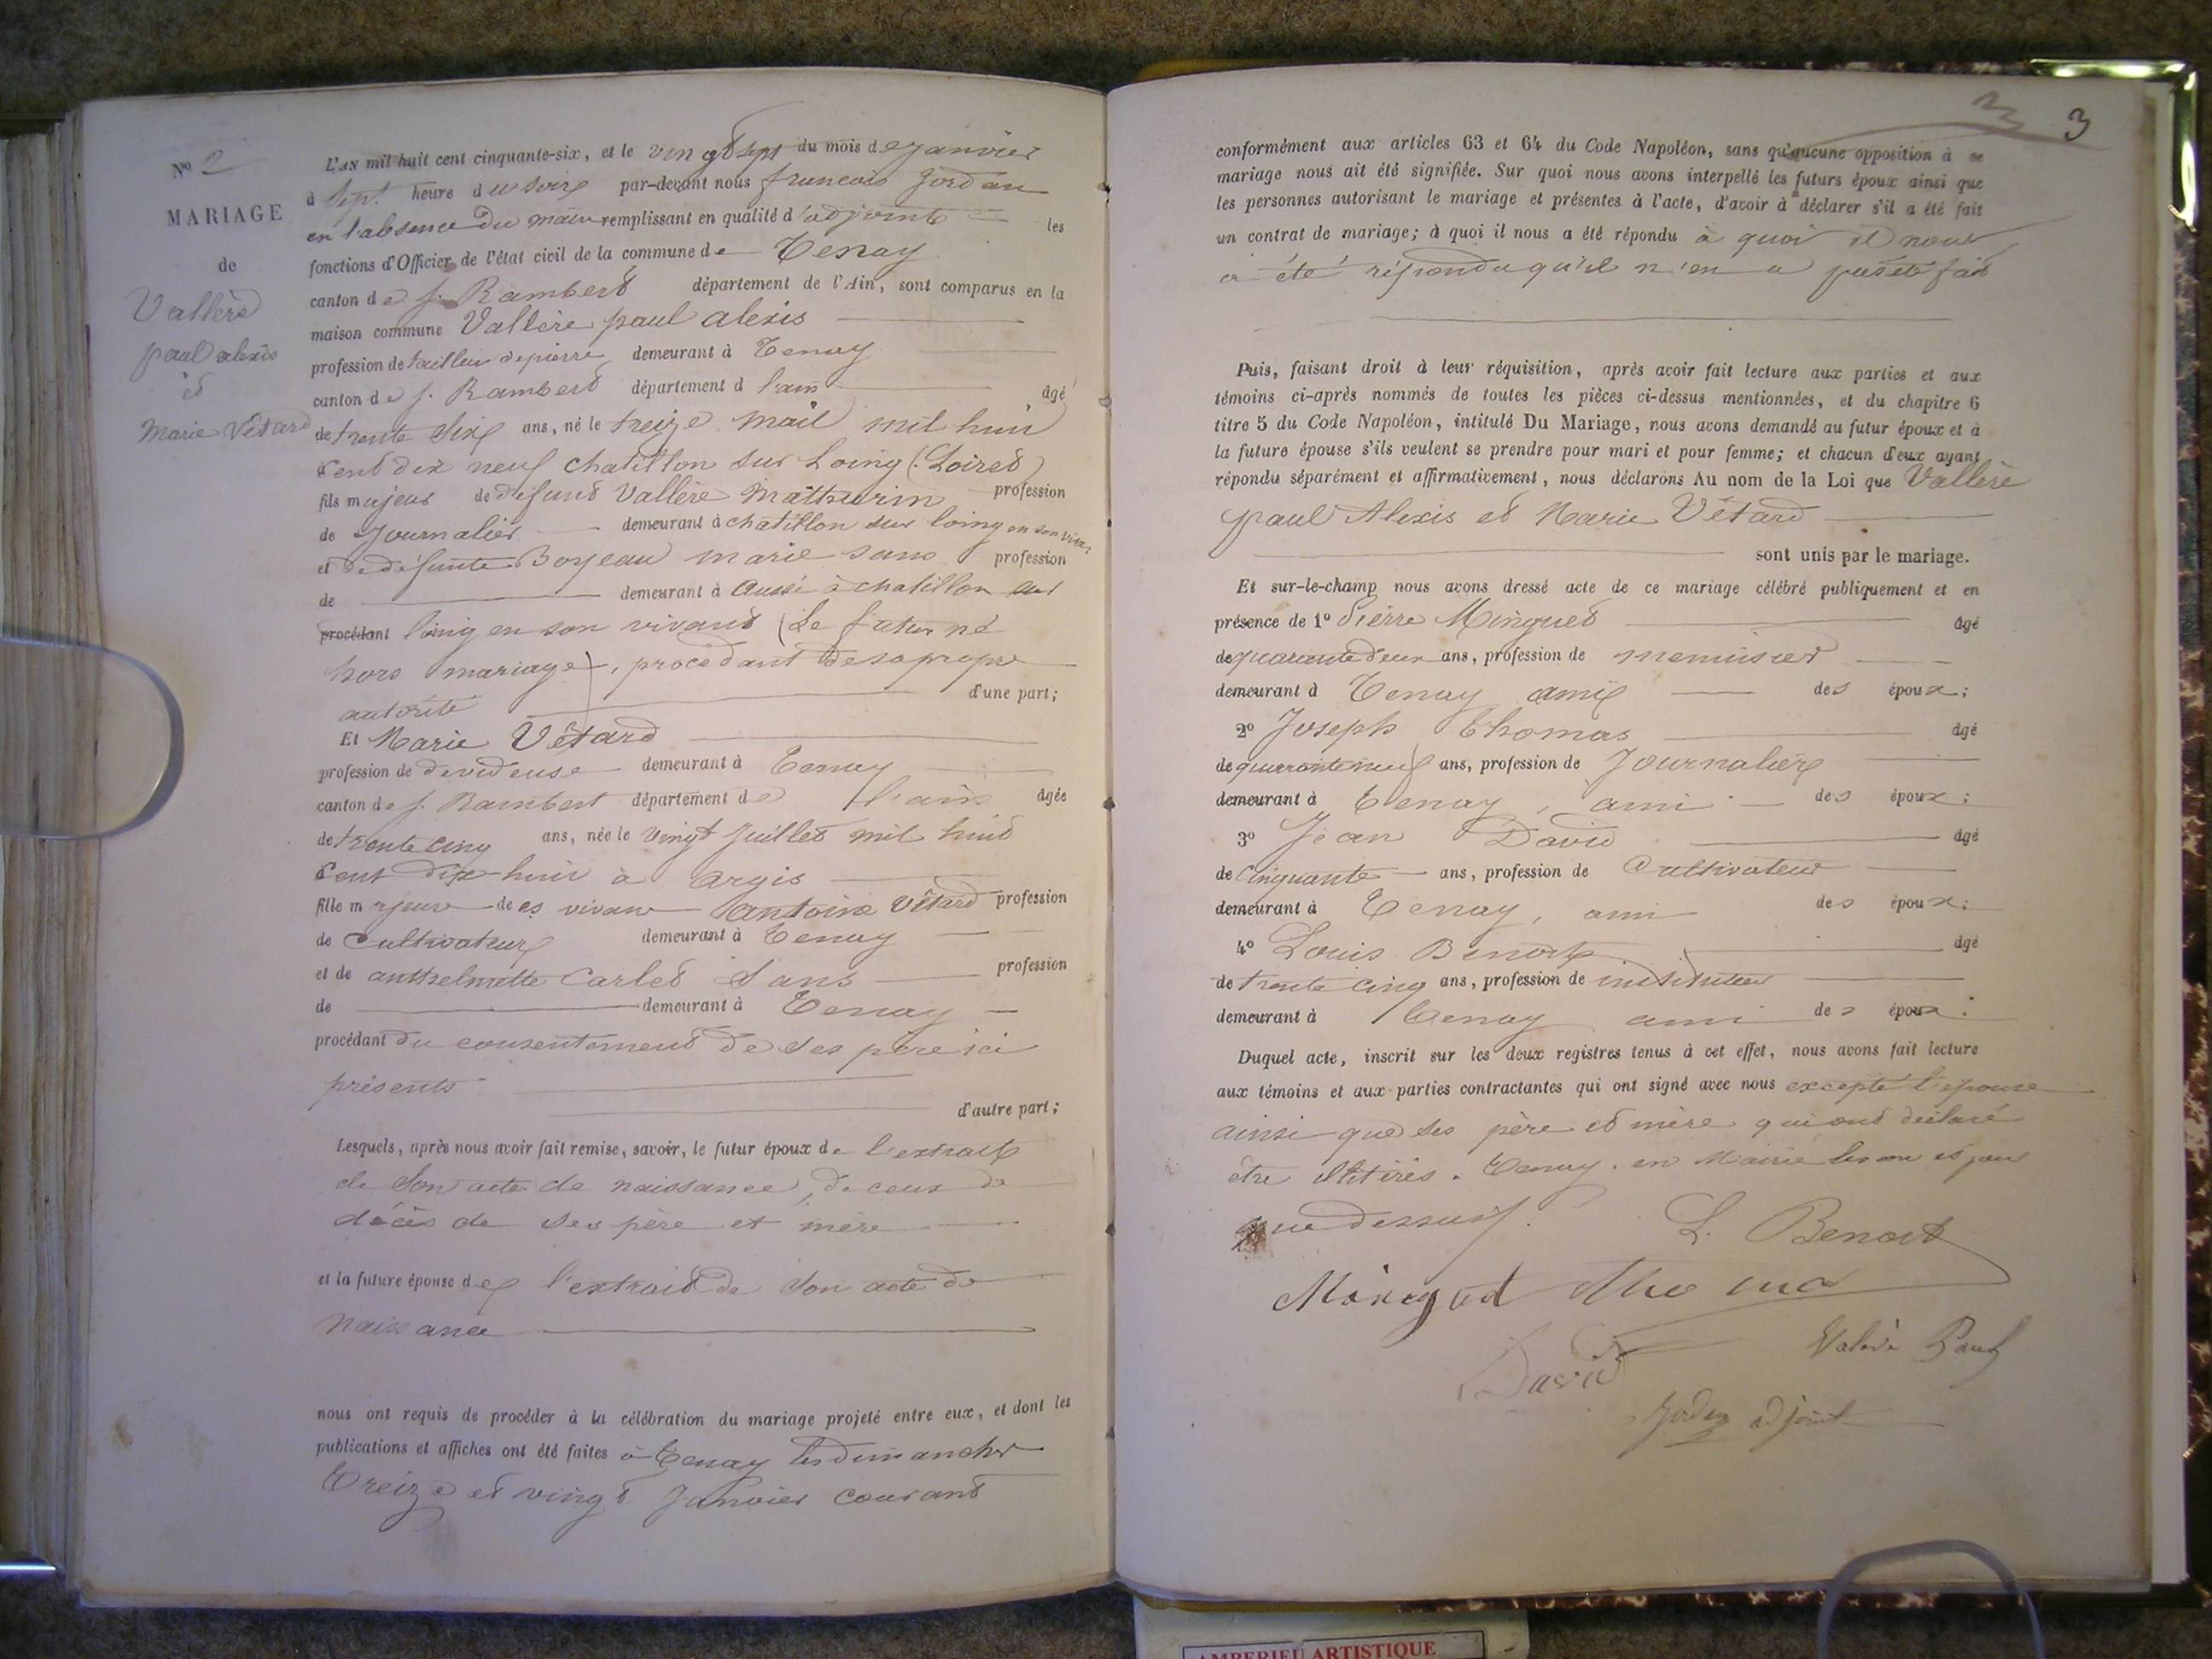 No 2
MARIAGE
de
Vallère
paul alexis
et
Marie Vétard
L'An mil huit cent cinquante-six, et le vingt sept du mois de janvier
à Sept heure du soir par-devant nous francois Jordan
en l'absence du maire remplissant en qualité d'adjoint les
fonctions d'Officier de l'état civil de la commune de Tenay
canton de S. Rambert département de l'Ain, sont comparus en la
maison commune Vallère paul alexis
profession de tailleur de pierre demeurant à Tenay
canton de S. Rambert département d l'ain âgé
de trente Six ans, né le treize mail mil huit
cent dix neuf chatillon sur Loing (Loiret)
fils majeur de défunt Vallère Mathurin profession
de Journalier demeurant à chatillon sur loing en son vivant
et de défunte Boyeau marie sans profession
de demeurant à Aussi à chatillon sur
procédant loing en son vivant (Le futur né
hors mariage), procédant de sa propre
autorité d'une part;
Et Marie Vétard
profession de devideuse demeurant à Tenay
canton de S. Rambert département de l'ain âgée
de trente cinq ans, née le vingt Juillet mil huit
cent dix-huit à argis
fille majeure de es vivant antoine Vétard profession
de Cultivateur demeurant à Tenay
et de antthelmette Carlet Sans profession
de demeurant à Tenay
procédant du consentement de ses père ici
présents
d'autre part;
Lesquels, après nous avoir fait remise, savoir, le futur époux de l'extrait
de Son acte de naissance, de ceux de
décès de ses père et mère
et la future épouse de l'extrait de Son acte de
naissance
nous ont requis de procéder à la célébration du mariage projeté entre eux, et dont les
publications et affiches ont été faites à Tenay les dimanches
Treize et vingt Janvier courant
3
conformément aux articles 63 et 64 du Code Napoléon, sans qu'aucune opposition à ce
mariage nous ait été signifiée. Sur quoi nous avons interpellé les futurs époux ainsi que
les personnes autorisant le mariage et présentes à l'acte, d'avoir à déclarer s'il a été fait
un contrat de mariage; à quoi il nous a été répondu à quoi il nous
a été répondu qu'il n'en a pas été fait
Puis, faisant droit à leur réquisition, après avoir fait lecture aux parties et aux
témoins ci-après nommés de toutes les pièces ci-dessus mentionnées, et du chapitre 6
titre 5 du Code Napoléon, intitulé Du Mariage, nous avons demandé au futur époux et à
la future épouse s'ils veulent se prendre pour mari et pour femme; et chacun d'eux ayant
répondu séparément et affirmativement, nous déclarons Au nom de la Loi que Vallère
paul Alexis et Marie Vétard
sont unis par le mariage.
Et sur-le-champ nous avons dressé acte de ce mariage célébré publiquement et en
présence de 1° Pierre Minguet âgé
de quarante deux ans, profession de menuisier
demeurant à Tenay ami des époux;
2° Joseph Thomas âgé
de quarante neuf ans, profession de Journalier
demeurant à Tenay, ami des époux;
3° Jean David âgé
de Cinquante ans, profession de Cultivateur
demeurant à Tenay, ami des époux;
4° Louis Benoit âgé
de trente cinq ans, profession de instituteur
demeurant à Tenay ami des époux.
Duquel acte, inscrit sur les deux registres tenus à cet effet, nous avons fait lecture
aux témoins et aux parties contractantes qui ont signé avec nous excepté l'épouse
ainsi que ses père et mère qui ont déclaré
être illitirés. Tenay. en Mairie les an et jour
que dessus.
L. Benoit
Minguet Thomas
David Valère Paul
Jordan adjoint
AMBERIEU ARTISTIQUE